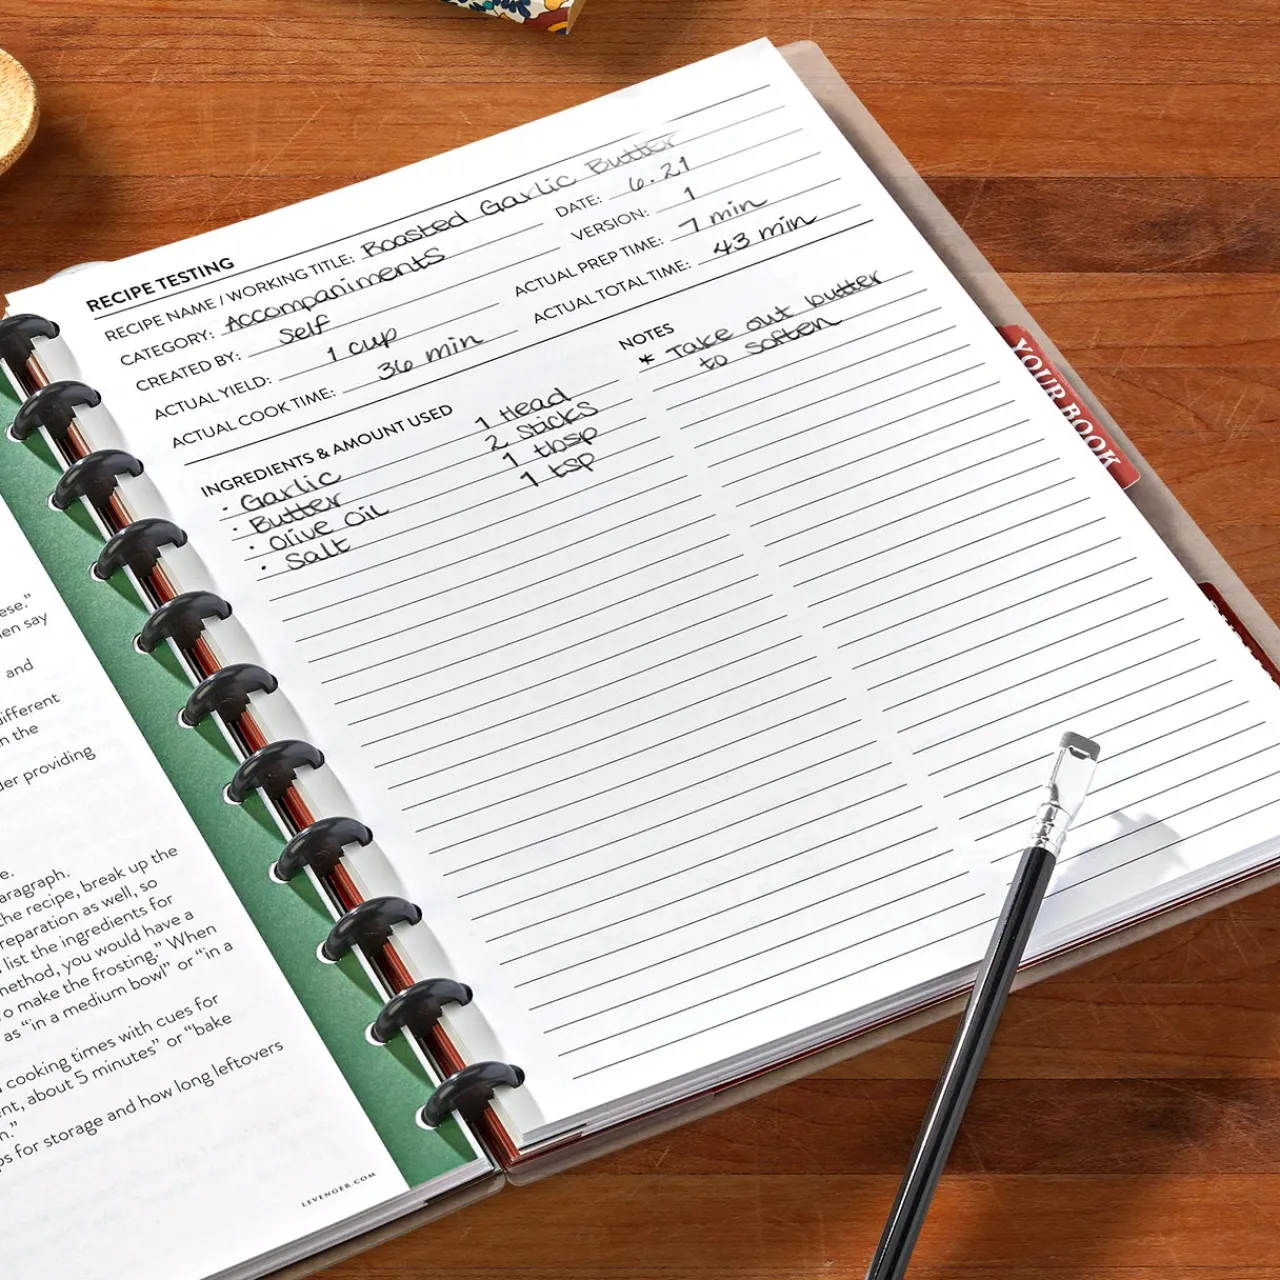 RECIPE TESTING
RECIPE NAME / WORKING TITLE: Roasted Garlic Butter
CATEGORY: Accompaniments
DATE: 6.21
CREATED BY: Self
VERSION: 1
ACTUAL YIELD: 1 cup
ACTUAL PREP TIME: 7 min
ACTUAL COOK TIME: 36 min
ACTUAL TOTAL TIME: 43 min
INGREDIENTS & AMOUNT USED
· Garlic 1 Head
· Butter 2 Sticks
· Olive Oil 1 tbsp
· Salt 1 tsp
NOTES
* Take out butter
to soften
YOUR BOOK
ese."
en say
and
ifferent
n the
er providing
e.
aragraph.
the recipe, break up the
reparation as well, so
list the ingredients for
method, you would have a
o make the frosting." When
as "in a medium bowl" or "in a
cooking times with cues for
nt, about 5 minutes" or "bake
n."
ps for storage and how long leftovers
LEVENGER.COM